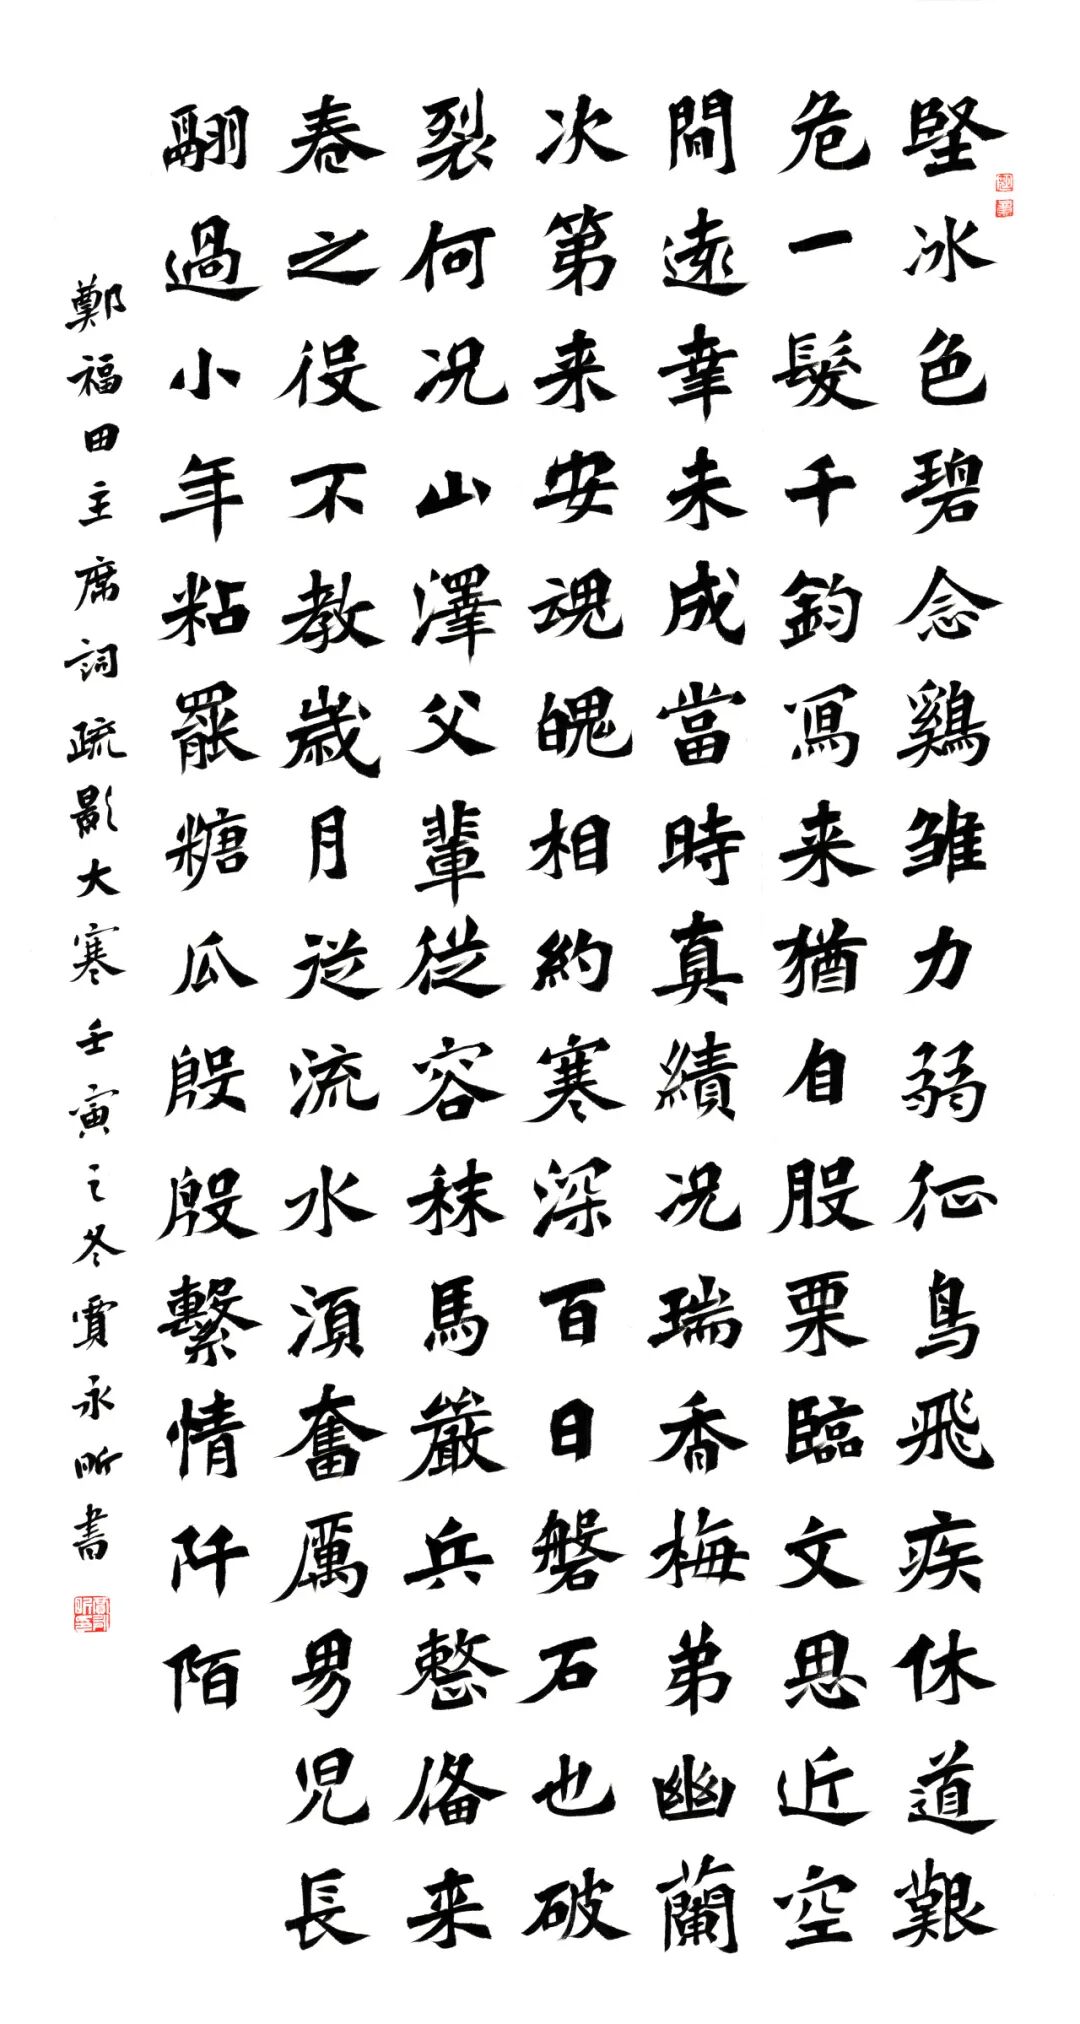 堅冰色碧念鷄雏力弱征鳥飛疾休道艱
危一髮千鈞寫来猶自股栗臨文思近空
間遠幸未成當時真績况瑞香梅弟幽蘭
次第来安魂魄相約寒深百日磐石也破
裂何况山澤父輩從容秣馬嚴兵整俻来
春之役不教歲月從流水須奮厲男児長
翮過小年粘罷糖瓜殷殷繫情阡陌
鄭福田主席詞疏影大寒壬寅之冬賈永昕書